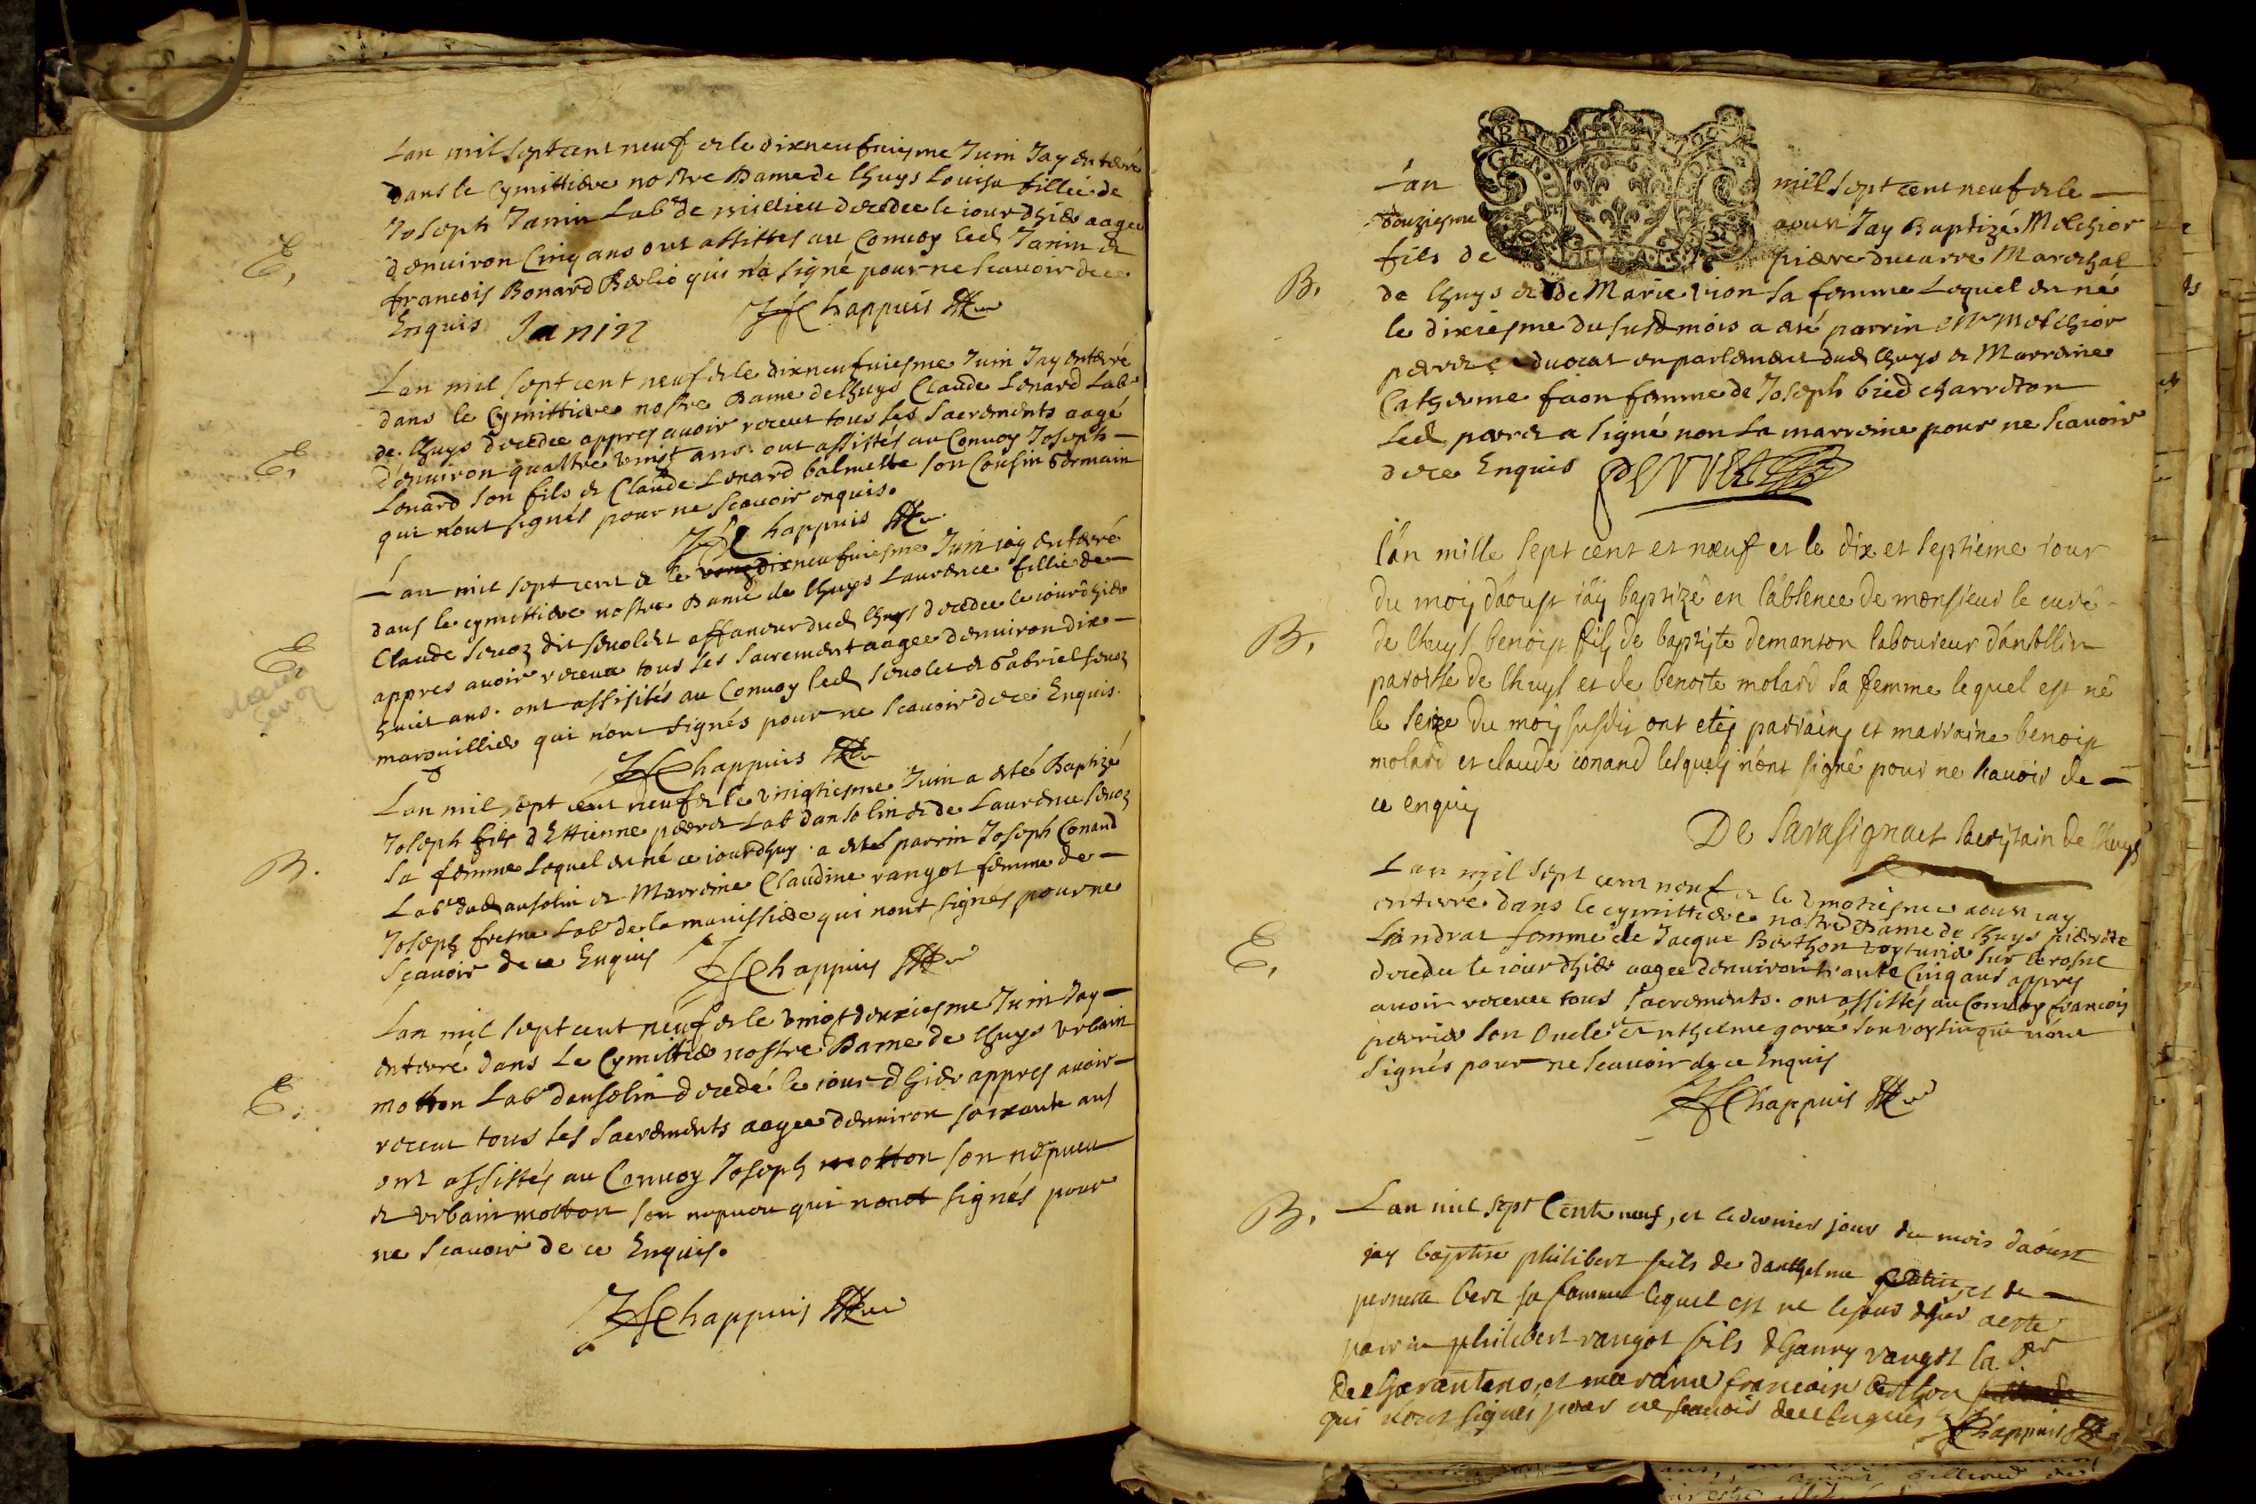 Lan mil sept cent neuf et le dixneufuiesme Juin Jay enterré
dans le Cymittiere nostre Dame de lhuys Louise fillie de
Joseph Janin Labr de millieu decedee le iour dhier aagee
denuiron Cinq ans ont assistes au Conuoy led Janin et
francois Bonard Belio qui na signé pour ne scauoir de ce
Enquis Janin Chappuis
E.
Lan mil sept cent neuf et le dixneufuiesme Juin Jay enterré
dans le Cymittiere nostre Dame de lhuys Claude Lonard Labr
de lhuys decedee appres auoir receut tous les sacrements aagé
denuiron quattre vingt ans ont assistés au Conuoy Joseph
Lonard son fils et Claude Lonard balmette son Cousin Germain
qui nont signés pour ne scauoir enquis.
Chappuis
E.
Lan mil sept cent et le dixneufuiesme Juin iay enterré
dans le cymittiere nostre Dame de lhuys Laurence fillie de
Claude seuoz dit seuolet affaneur dud lhuys decedee le iourdhier
appres auoir receue tous les sacrement aagee denuiron dix
huict ans. ont assisités au Conuoy led seuolet et Gabriel seuoz
marouillier qui nont signés pour ne scauoir de ce Enquis.
Chappuis
E.
Lan mil sept cent neuf et le vingtiesme Juin a esté Baptizé
Joseph fils dEttienne peeret Lab dansolin et de Laurence seuoz
sa femme Lequel est né ce iourdhuy a estes parrin Joseph Conand
Labr dud ansolin et Marreine Claudine rangot femme de
Joseph fresne Labr de la manissiere qui nont signés pour ne
scauoir de ce Enquis Chappuis
B.
Lan mil sept cent neuf et le vingtdeuxiesme Juin Jay
enterré dans Le Cymittier nostre Dame de lhuys vrbain
motton Labr dansolin decedé le iour dhier appres auoir
receut tous les sacrements aagee denuiron soixante ans
ont assistés au Conuoy Joseph motton son nepueu
et vrbain motton son nepueu qui nont signés pour
ne scauoir de ce Enquis.
Chappuis
E.
Lan mil sept cent neuf et le
douziesme aoust Jay Baptizé Melchior
fils de piere ducarre Mareschal
de lhuys et de Marie vion sa femme Lequel est né
le dixiesme du susd mois a esté parrin Mr Melchior
peeret aduocat en parlement dud lhuys et Marreine
Catherine faon femme de Joseph bied charreton
Led peeret a signé non La marreine pour ne scauoir
de ce Enquis
B.
lán mille sept cent et nœuf et le dix et septieme iour
du moy dáoust iáy baptizé en lábsence de monsieur le curé
de lhuys benoist fils de baptiste demanton laboureur dánsollin
paroisse de lhuys et de benoite molard sa femme lequel est né
le seize du moy susdit ont etés parrains et marraine benoist
molard et claude conand lesquels nónt signé pour ne scauoir de
ce enquis
De Sarasignact sacristain de lhuys
B.
Lan mil sept cent neuf et le aoust iay
enterré dans le cymittiere nostre Dame de lhuys pierrete
Landrat femme de Jacque Berthon voyturier sur le rosne
decedee le iour dhier aagee denuiron trante Cinq ans appres
auoir receuee tous sacrements. ont assistés au Conuoy francois
perrier son Oncle et anthelme son voysin qui nont
signés pour ne scauoir de ce Enquis
Chappuis
E.
Lan mil sept Cent neuf, et le dernier jour du mois daoust
jay baptise philibert fils de danthelme et de
pernette bert sa femme lequel est ne le jour dhier a esté
parrin philibert rangot fils dhanry rangot labr
de Charantens, et maraine francoise berthon
qui nont signés pour ne scauoir de ce enquis Chappuis
B.